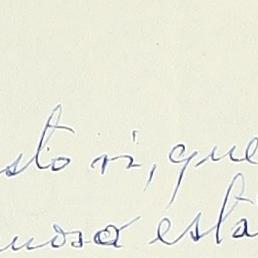 sto vi, que
mosa está